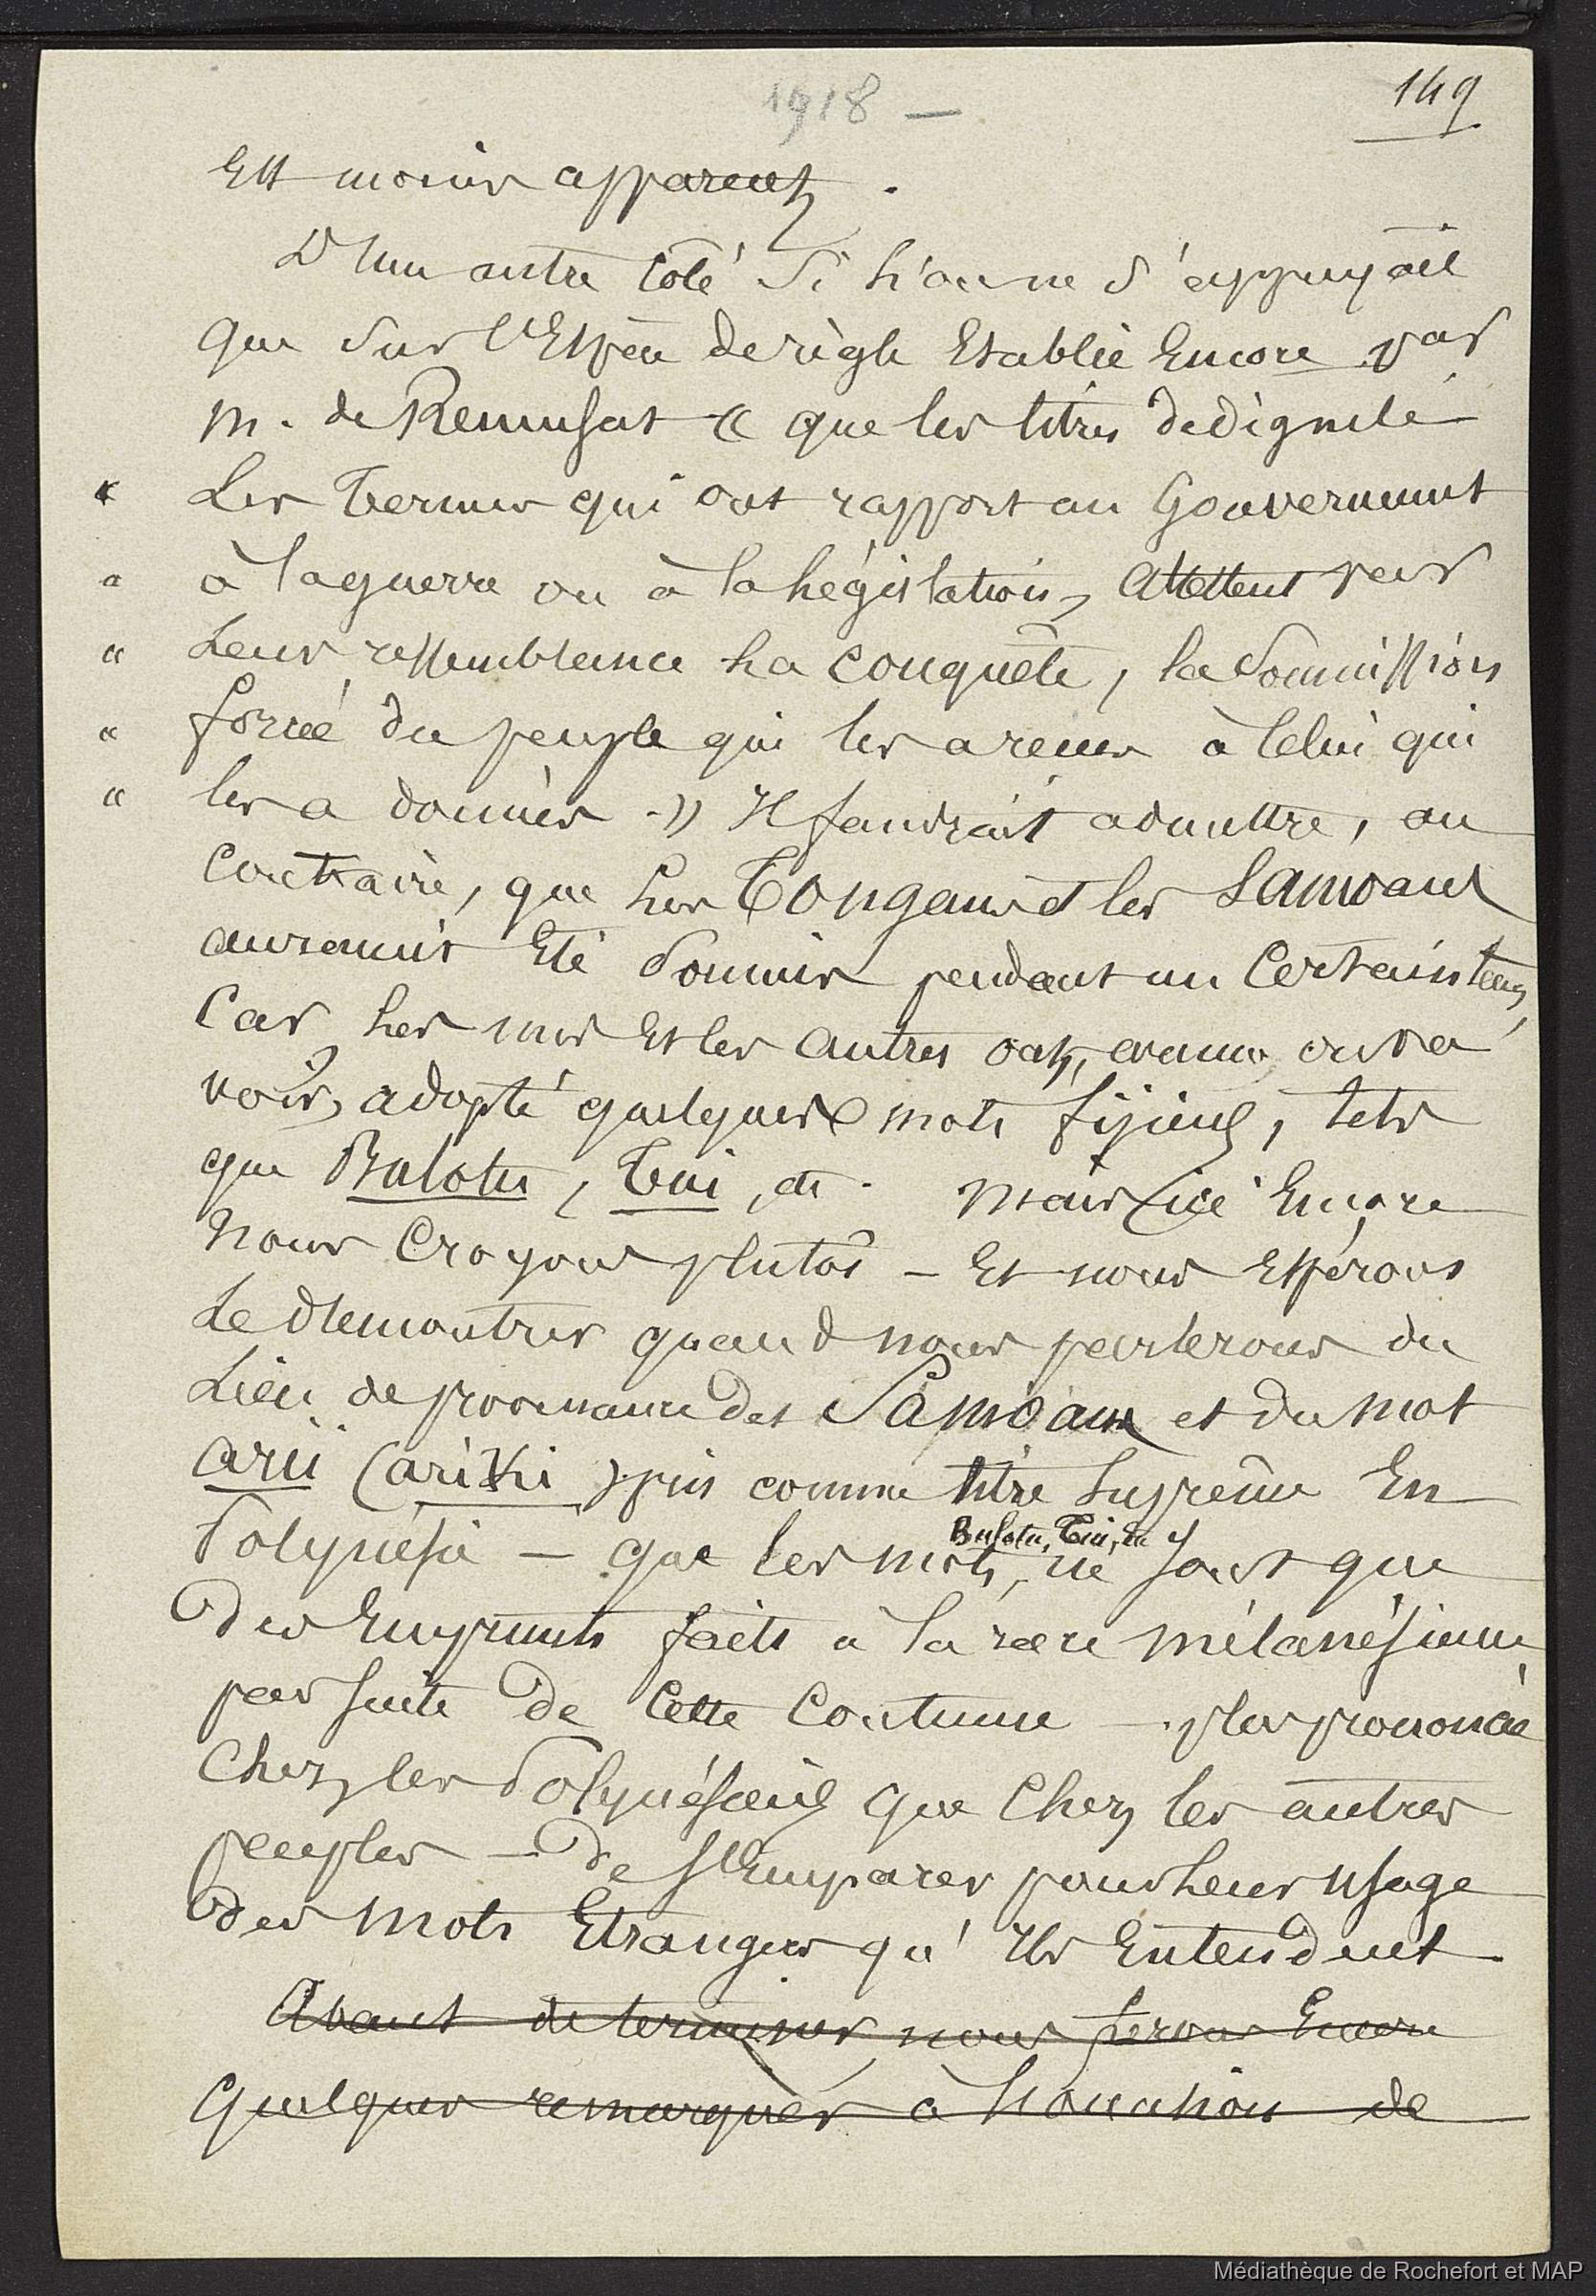 1918 —
149
Est moins apparent.
D'un autre Coté Si l'on ne s'appuyait
que sur l'Espèce de règle Etablie Encore par
M. de Remusat « que les titres de dignité
« Les termes qui ont rapport au Gouvernement
« à la guerre ou à la législation, attestent par
« Leur ressemblance la Conquête, la Soumission
« forcée du peuple qui les a reçus à Celui qui
« les a donnés. » Il faudrait admettre, au
Contraire, que les Tongans et les Samoans
auraient Eté Soumis pendant un Certain tems,
Car les uns et les Autres ont, comme on va
voir, adopté quelques mots fijiens, tels
que Bulotu, Tui, etc. Mais ici Encore
Nous Croyons plutôt — Et nous Espérons
Le démontrer quand nous parlerons du
Lieu de provenance des Samoans et du mot
arii (ariki) pris comme titre Suprême En
Polynésie — que les mots Bulotu, Tui, etc ne sont que
des Emprunts faits à la race Mélanésienne
par suite de Cette Coutume — plus prononcée
Chez les Polynésiens que Chez les autres
peuples — de s'Emparer pour leur usage
des mots Etrangers qu'ils Entendent.
Avant de terminer nous ferons Encore
Quelques remarques à l'occasion de
Médiathèque de Rochefort et MAP